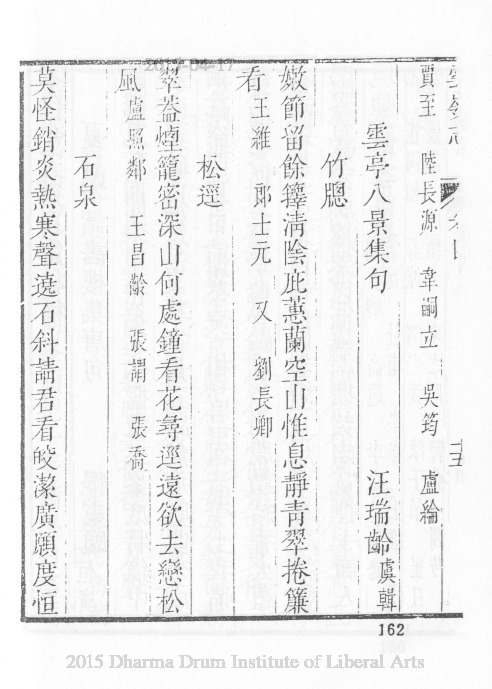 賈至 陸長源 韋嗣立 吳筠 盧綸
雲亭八景集句 汪瑞齡 虞輯
竹牕
嫩節留餘籜清陰庇蕙蘭空山惟息靜青翠捲簾
看 王維 郎士元 又 劉長卿
松逕
翠蓋煙籠密深山何處鐘看花尋逕遠欲去戀松
風 盧照鄰 王昌齡 張謂 張喬
石泉
莫怪銷炎熱寒聲遶石斜請君看皎潔廣願度恒
162
2015 Dharma Drum Institute of Liberal Arts